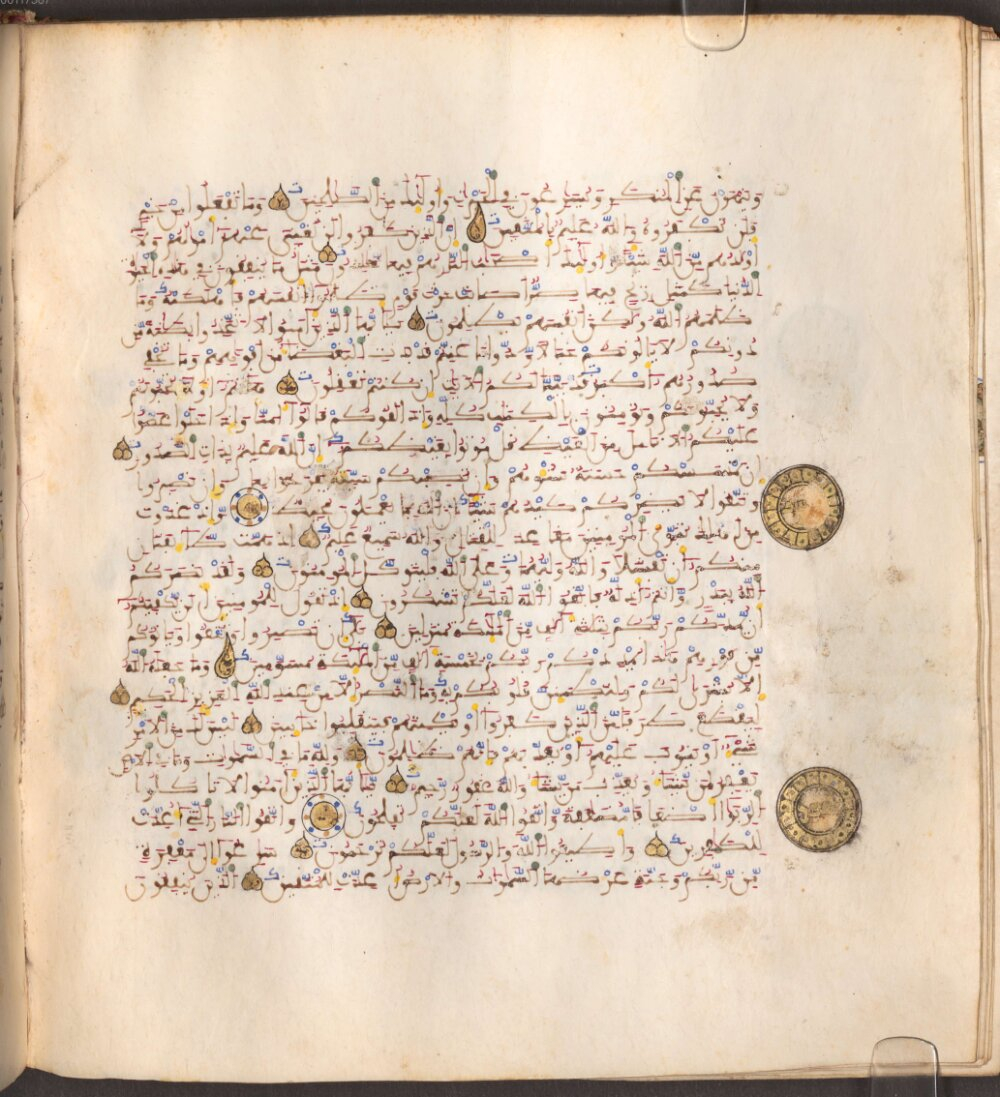 وينهون عن المنكر ويسرعون في الخيرت واوليك من الصلحين وما تفعلوا من خير
فلن تكفروه والله عليم بالمتقين ان الذين كفروا لن تغني عنهم اموالهم ولا
اولدهم من الله شيئا واوليك اصحب النار هم فيها خلدون مثل ما ينفقون في هذه الحيوة
الدنيا كمثل ريح فيها صر اصابت حرث قوم ظلموا انفسهم فاهلكته وما
ظلمهم الله ولكن انفسهم يظلمون يايها الذين امنوا لا تتخذوا بطانة من
دونكم لا يالونكم خبالا ودوا ما عنتم قد بدت البغضا من افوههم وما تخفي
صدورهم اكبر قد بينا لكم الايت ان كنتم تعقلون هانتم اولا تحبونهم
ولا يحبونكم وتومنون بالكتب كله واذا لقوكم قالوا امنا واذا خلوا عضوا
عليكم الانامل من الغيظ قل موتوا بغيظكم ان الله عليم بذات الصدور
ان تمسسكم حسنة تسوهم وان تصبكم سيئة يفرحوا بها وان تصبروا
وتتقوا لا يضركم كيدهم شيئا ان الله بما يعملون محيط واذ غدوت
من اهلك تبوئ المومنين مقعد للقتال والله سميع عليم اذ همت طايفتن
منكم ان تفشلا والله وليهما وعلى الله فليتوكل المومنون ولقد نصركم
الله ببدر وانتم اذلة فاتقوا الله لعلكم تشكرون اذ تقول للمومنين الن يكفيكم
ان يمدكم ربكم بثلثة الف من المليكة منزلين بلى ان تصبروا وتتقوا وياتوكم
من فورهم هذا يمددكم ربكم بخمسة الف من المليكة مسومين وما جعله الله
الا بشرى لكم ولتطمين قلوبكم به وما النصر الا من عند الله العزيز الحكيم
ليقطع طرفا من الذين كفروا او يكبتهم فينقلبوا خايبين ليس لك من الامر
شي او يتوب عليهم او يعذبهم فانهم ظلمون ولله ما في السموت وما في الارض
يغفر لمن يشا ويعذب من يشا والله غفور رحيم يايها الذين امنوا لا تاكلوا
الربوا اضعفا مضعفة واتقوا الله لعلكم تفلحون واتقوا النار التي اعدت
للكفرين واطيعوا الله والرسول لعلكم ترحمون سارعوا الى مغفرة
من ربكم وجنة عرضها السموت والارض اعدت للمتقين الذين ينفقون